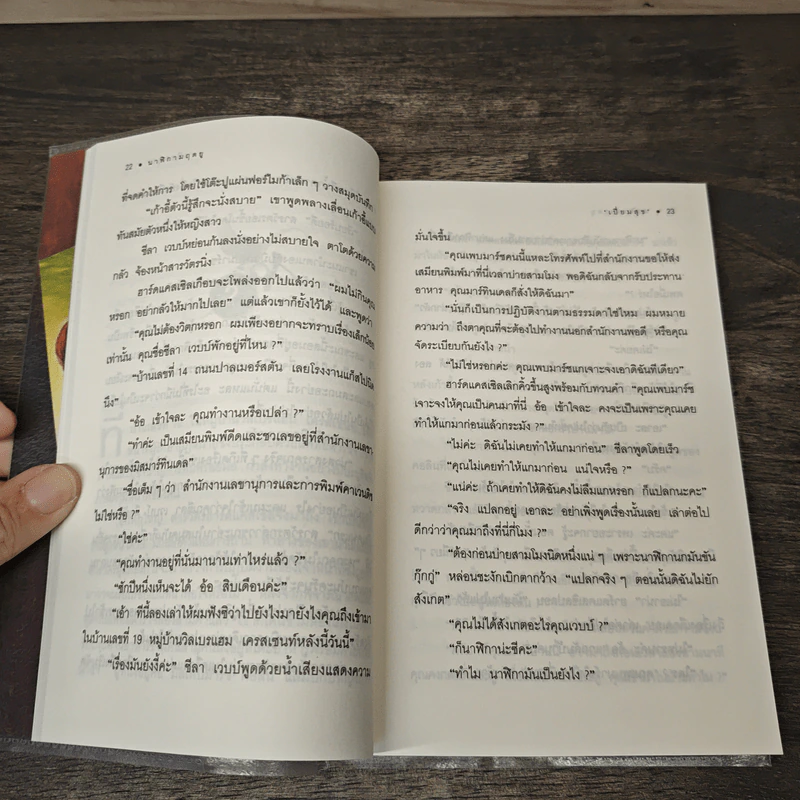 22 • นาฬิกามฤตยู
ที่จดคำให้การ โดยใช้โต๊ะปูแผ่นฟอร์ไมก้าเล็ก ๆ วางสมุดบันทึก
"เก้าอี้ตัวนี้รู้สึกจะนั่งสบาย" เขาพูดพลางเลื่อนเก้าอี้แบบ
ทันสมัยตัวหนึ่งให้หญิงสาว
ชีลา เวบบ์หย่อนก้นลงนั่งอย่างไม่สบายใจ ตาโตด้วยความ
กลัว จ้องหน้าสารวัตรนิ่ง
ฮาร์ดแคสเซิลเกือบจะโพล่งออกไปแล้วว่า "ผมไม่กินคุณ
หรอก อย่ากลัวให้มากไปเลย" แต่แล้วเขาก็ยั้งไว้ได้ และพูดว่า
"คุณไม่ต้องวิตกหรอก ผมเพียงอยากจะทราบเรื่องเล็กน้อย
เท่านั้น คุณชื่อชีลา เวบบ์พักอยู่ที่ไหน ?"
"บ้านเลขที่ 14 ถนนปาลเมอร์สตัน เลยโรงงานแก๊สไปนิด
นึง"
"อ้อ เข้าใจละ คุณทำงานหรือเปล่า ?"
"ทำค่ะ เป็นเสมียนพิมพ์ดีดและชวเลขอยู่ที่สำนักงานเลขา
นุการของมิสมาร์ทินเดล"
"ชื่อเต็ม ๆ ว่า สำนักงานเลขานุการและการพิมพ์คาเวนดิช
ไม่ใช่หรือ ?"
"ใช่ค่ะ"
"คุณทำงานอยู่ที่นั่นมานานเท่าไหร่แล้ว ?"
"ซักปีหนึ่งเห็นจะได้ อ้อ สิบเดือนค่ะ"
"เอ้า ทีนี้ลองเล่าให้ผมฟังซิว่าไปยังไงมายังไงคุณถึงเข้ามา
ในบ้านเลขที่ 19 หมู่บ้านวิลเบรแฮม เครสเซนท์หลังนี้วันนี้"
"เรื่องมันยังงี้ค่ะ" ชีลา เวบบ์พูดด้วยน้ำเสียงแสดงความ
"เปี่ยมสุข" • 23
มั่นใจขึ้น
"คุณเพบมาร์ชคนนี้แหละโทรศัพท์ไปที่สำนักงานขอให้ส่ง
เสมียนพิมพ์มาที่นี่เวลาบ่ายสามโมง พอดิฉันกลับจากรับประทาน
อาหาร คุณมาร์ทินเดลก็สั่งให้ดิฉันมา"
"นั่นก็เป็นการปฏิบัติงานตามธรรมดาใช่ไหม ผมหมาย
ความว่า ถึงตาคุณที่จะต้องไปทำงานนอกสำนักงานพอดี หรือคุณ
จัดระเบียบกันยังไง ?"
"ไม่ใช่หรอกค่ะ คุณเพบมาร์ชแกเจาะจงเอาดิฉันทีเดียว"
ฮาร์ดแคสเซิลเลิกคิ้วขึ้นสูงพร้อมกับทวนคำ "คุณเพบมาร์ช
เจาะจงให้คุณเป็นคนมาที่นี่ อ้อ เข้าใจละ คงจะเป็นเพราะคุณเคย
ทำให้แกมาก่อนแล้วกระมัง ?"
"ไม่ค่ะ ดิฉันไม่เคยทำให้แกมาก่อน" ชีลาพูดโดยเร็ว
"คุณไม่เคยทำให้แกมาก่อน แน่ใจหรือ ?"
"แน่ค่ะ ถ้าเคยทำให้ดิฉันคงไม่ลืมแกหรอก ก็แปลกนะคะ"
"จริง แปลกอยู่ เอาละ อย่าเพิ่งพูดเรื่องนั้นเลย เล่าต่อไป
ดีกว่าว่าคุณมาถึงที่นี่กี่โมง ?"
"ต้องก่อนบ่ายสามโมงนิดหนึ่งแน่ ๆ เพราะนาฬิกานกมันขัน
กุ๊กกู่" หล่อนชะงักเบิกตากว้าง "แปลกจริง ๆ ตอนนั้นดิฉันไม่ยัก
สังเกต"
"คุณไม่ได้สังเกตอะไรคุณเวบบ์ ?"
"ก็นาฬิกาน่ะซีคะ"
"ทำไม นาฬิกามันเป็นยังไง ?"